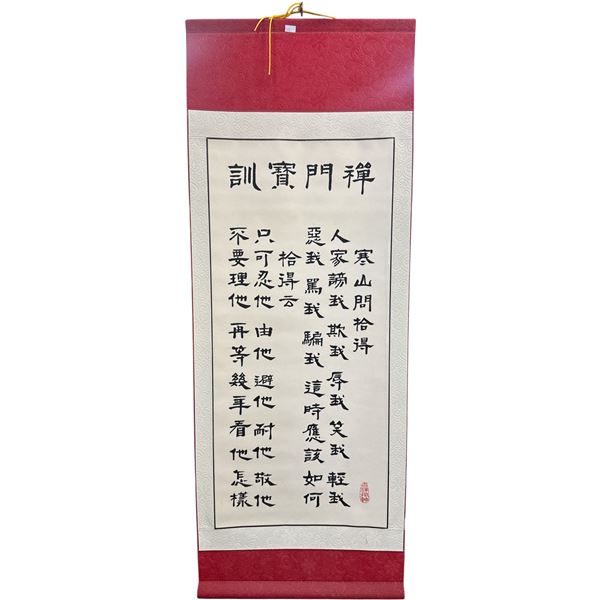 禪門寶訓
寒山問拾得
人家謗我 欺我 辱我 笑我 輕我
惡我 罵我 騙我 這時應該如何
拾得云
只可忍他 由他 避他 耐他 敬他
不要理他 再等幾年看他怎樣